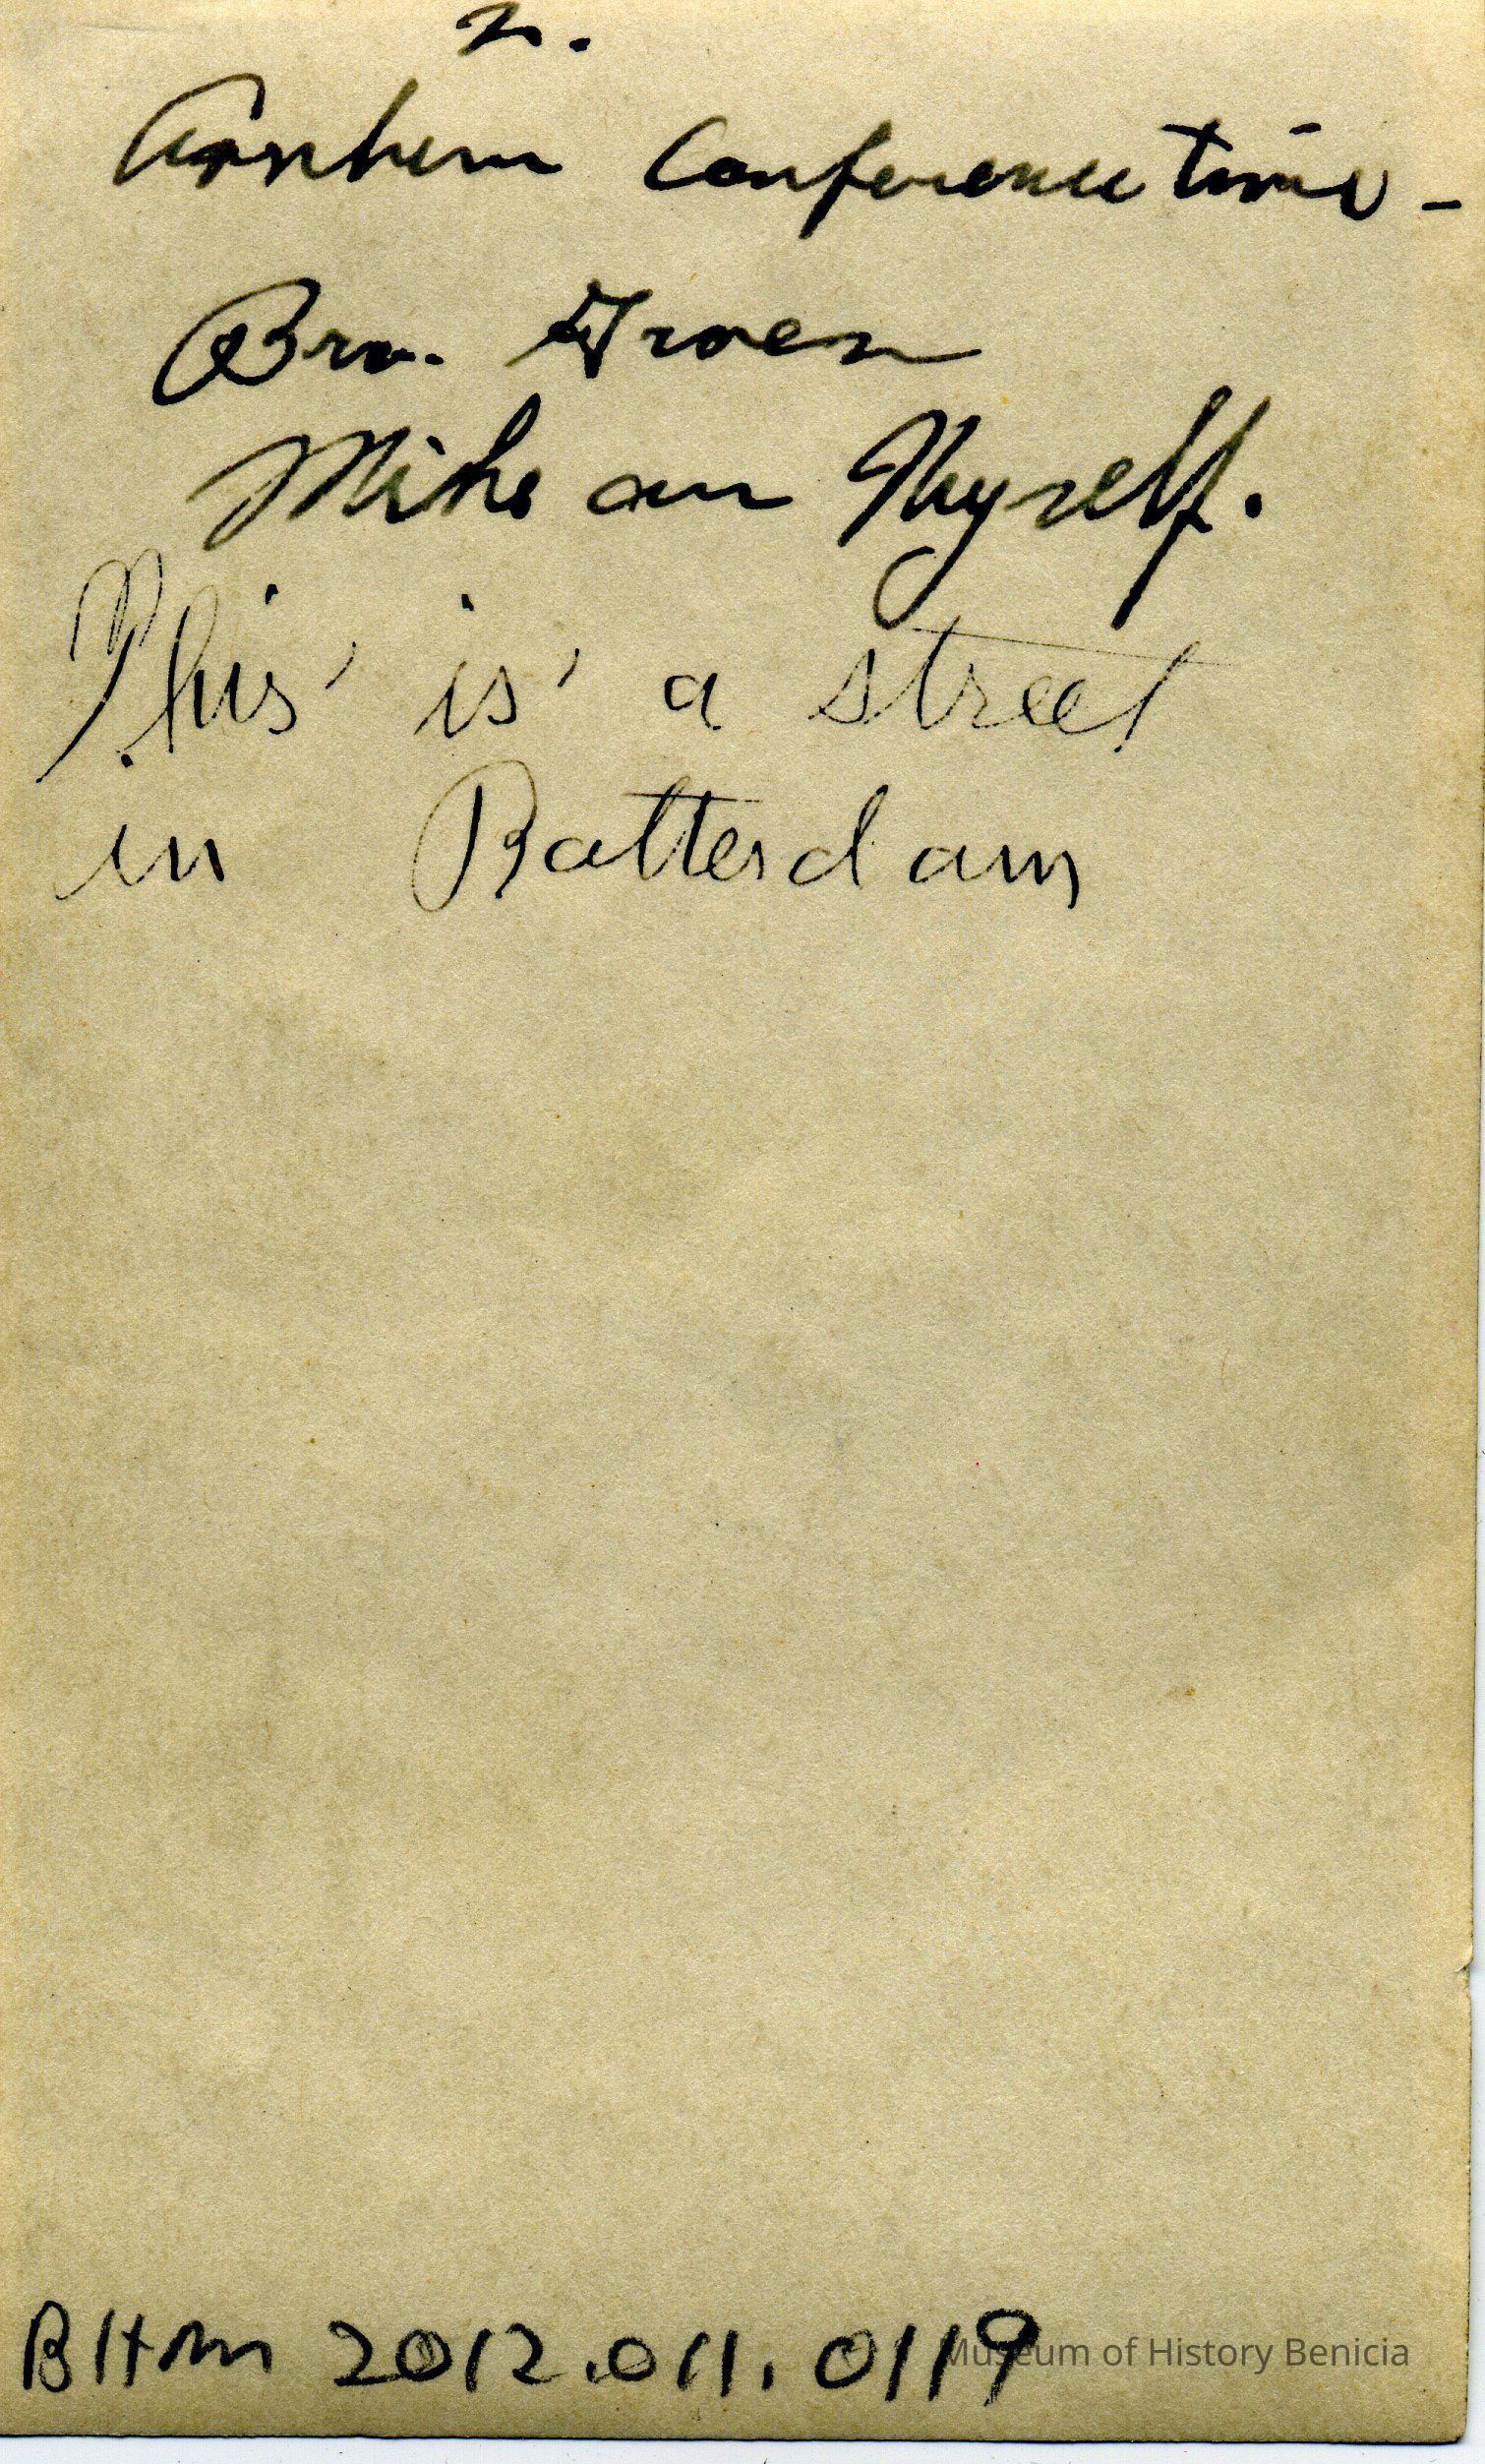 2.
Arnhem Conference time -
Bro. Groen
Mike an Myself.
This is a street
in Rotterdam
BHM 2012.011.0119
Museum of History Benicia